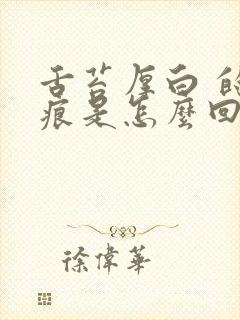 舌苔厚白
痕是怎麼回
徐偉華